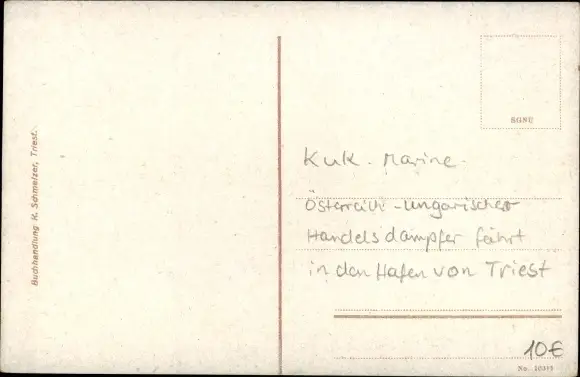 Buchhandlung K. Schmelzer, Triest.
SGNU
KuK. Marine.
Österreich-ungarischer
Handelsdampfer fährt
in den Hafen von Triest
10€
No.